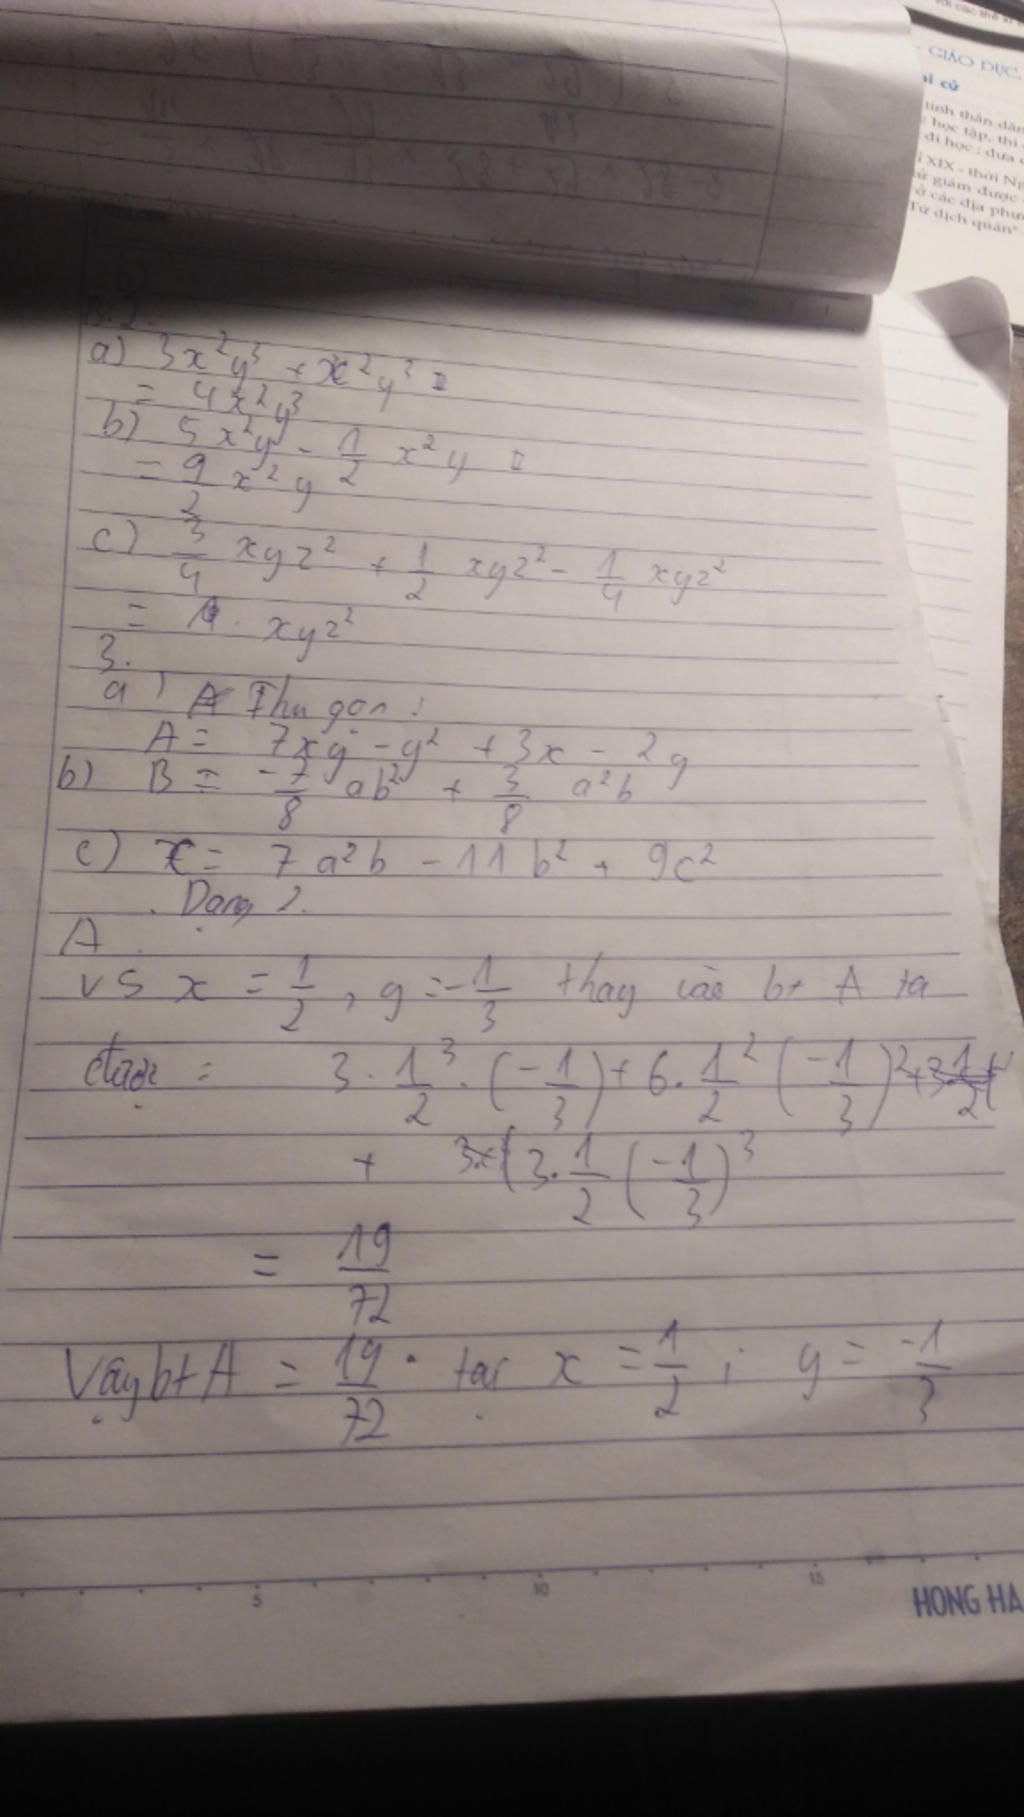 GIÁO DỤC,
ai cử
tinh thần dân
học tập, thi
đi học; đưa
XIX - thời Ng
ử giám được
ở các địa phư
Tứ dịch quán"
B.2.
a) 3x²y³ + x²y³ =
= 4x²y³
b) 5x²y - 1/2 x²y =
= 9/2 x²y
c) 3/4 xyz² + 1/2 xyz² - 1/4 xyz²
= 1. xyz²
3.
a) Thu gọn:
A = 7xy - y² + 3x - 2y
b) B = -7/8 ab² + 3/8 a²b
c) = 7a²b - 11b² + 9c²
Dạng 2.
A
VS x = 1/2, y = -1/3 thay vào bt A ta
được = 3. 1/2³. (-1/3) + 6. 1/2² (-1/3)²
+ 3. 1/2 (-1/3)³
= 19/72
Vậy bt A = 19/72 . tại x = 1/2 ; y = -1/3
5 10 15
HONG HA